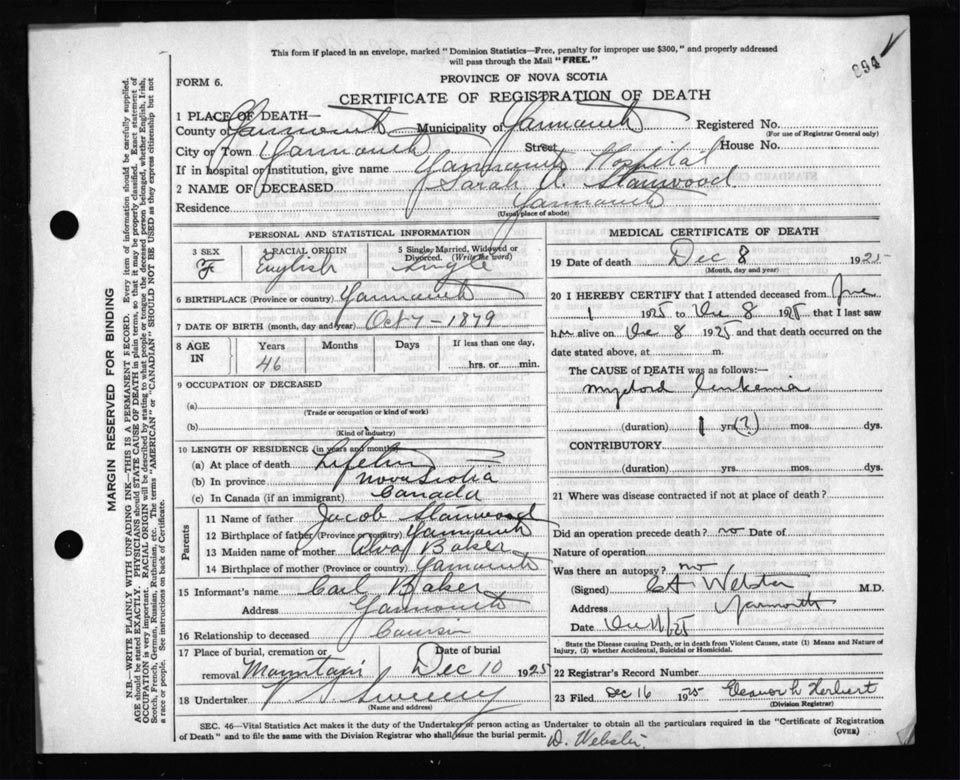 This form if placed in an envelope, marked "Dominion Statistics—Free, penalty for improper use $300," and properly addressed
will pass through the Mail "FREE."
894
FORM 6.
PROVINCE OF NOVA SCOTIA
CERTIFICATE OF REGISTRATION OF DEATH
1 PLACE OF DEATH—
County of Yarmouth Municipality of Yarmouth Registered No.
(For use of Registrar General only)
City or Town Yarmouth Street House No.
If in hospital or Institution, give name Yarmouth Hospital
2 NAME OF DECEASED Sarah A. Stanwood
Residence Yarmouth
(Usual place of abode)
PERSONAL AND STATISTICAL INFORMATION
3 SEX 4 RACIAL ORIGIN 5 Single, Married, Widowed or
Divorced. (Write the word)
F English Single
6 BIRTHPLACE (Province or country) Yarmouth
7 DATE OF BIRTH (month, day and year) Oct 7 - 1879
8 AGE IN Years Months Days If less than one day,
46 hrs. or min.
9 OCCUPATION OF DECEASED
(a)
(Trade or occupation or kind of work)
(b)
(Kind of industry)
10 LENGTH OF RESIDENCE (in years and months)
(a) At place of death Lifetime
(b) In province Nova Scotia
(c) In Canada (if an immigrant) Canada
Parents
11 Name of father Jacob Stanwood
12 Birthplace of father (Province or country) Yarmouth
13 Maiden name of mother Baker
14 Birthplace of mother (Province or country) Yarmouth
15 Informant's name Carl Baker
Address Yarmouth
16 Relationship to deceased Cousin
17 Place of burial, cremation or Date of burial
removal Mountain Dec 10 1925
18 Undertaker V S Sweeny
(Name and address)
MEDICAL CERTIFICATE OF DEATH
19 Date of death Dec 8 1925
(Month, day and year)
20 I HEREBY CERTIFY that I attended deceased from June
1 1925 to Dec 8 1925 that I last saw
her alive on Dec 8 1925 and that death occurred on the
date stated above, at m.
The CAUSE of DEATH was as follows:—
myeloid leukemia
(duration) 1 yrs (?) mos. dys.
CONTRIBUTORY
(duration) yrs. mos. dys.
21 Where was disease contracted if not at place of death?
Did an operation precede death? no Date of
Nature of operation
Was there an autopsy? no
(Signed) CA Webster M.D.
Address Yarmouth
Date Dec 11/25
State the Disease causing Death, or in death from Violent Causes, state (1) Means and Nature of
Injury, (2) whether Accidental, Suicidal or Homicidal.
22 Registrar's Record Number
23 Filed Dec 16 1925 Eleanor L Herbert
(Division Registrar)
SEC. 46—Vital Statistics Act makes it the duty of the Undertaker or person acting as Undertaker to obtain all the particulars required in the "Certificate of Registration
of Death" and to file the same with the Division Registrar who shall issue the burial permit. (OVER)
D. Webster.
MARGIN RESERVED FOR BINDING
N.B.—WRITE PLAINLY WITH UNFADING INK—THIS IS A PERMANENT RECORD. Every item of information should be carefully supplied.
AGE should be stated EXACTLY. PHYSICIANS should STATE CAUSE OF DEATH in plain terms, so that it may be properly classified. Exact statement of
OCCUPATION is very important. RACIAL ORIGIN will be described by stating to what people or tongue the deceased person belonged, whether English, Irish,
Scotch, French, German, Russian, Ruthenian, etc. The terms "AMERICAN" or "CANADIAN" SHOULD NOT BE USED as they express citizenship but not
a race or people. See instructions on back of Certificate.